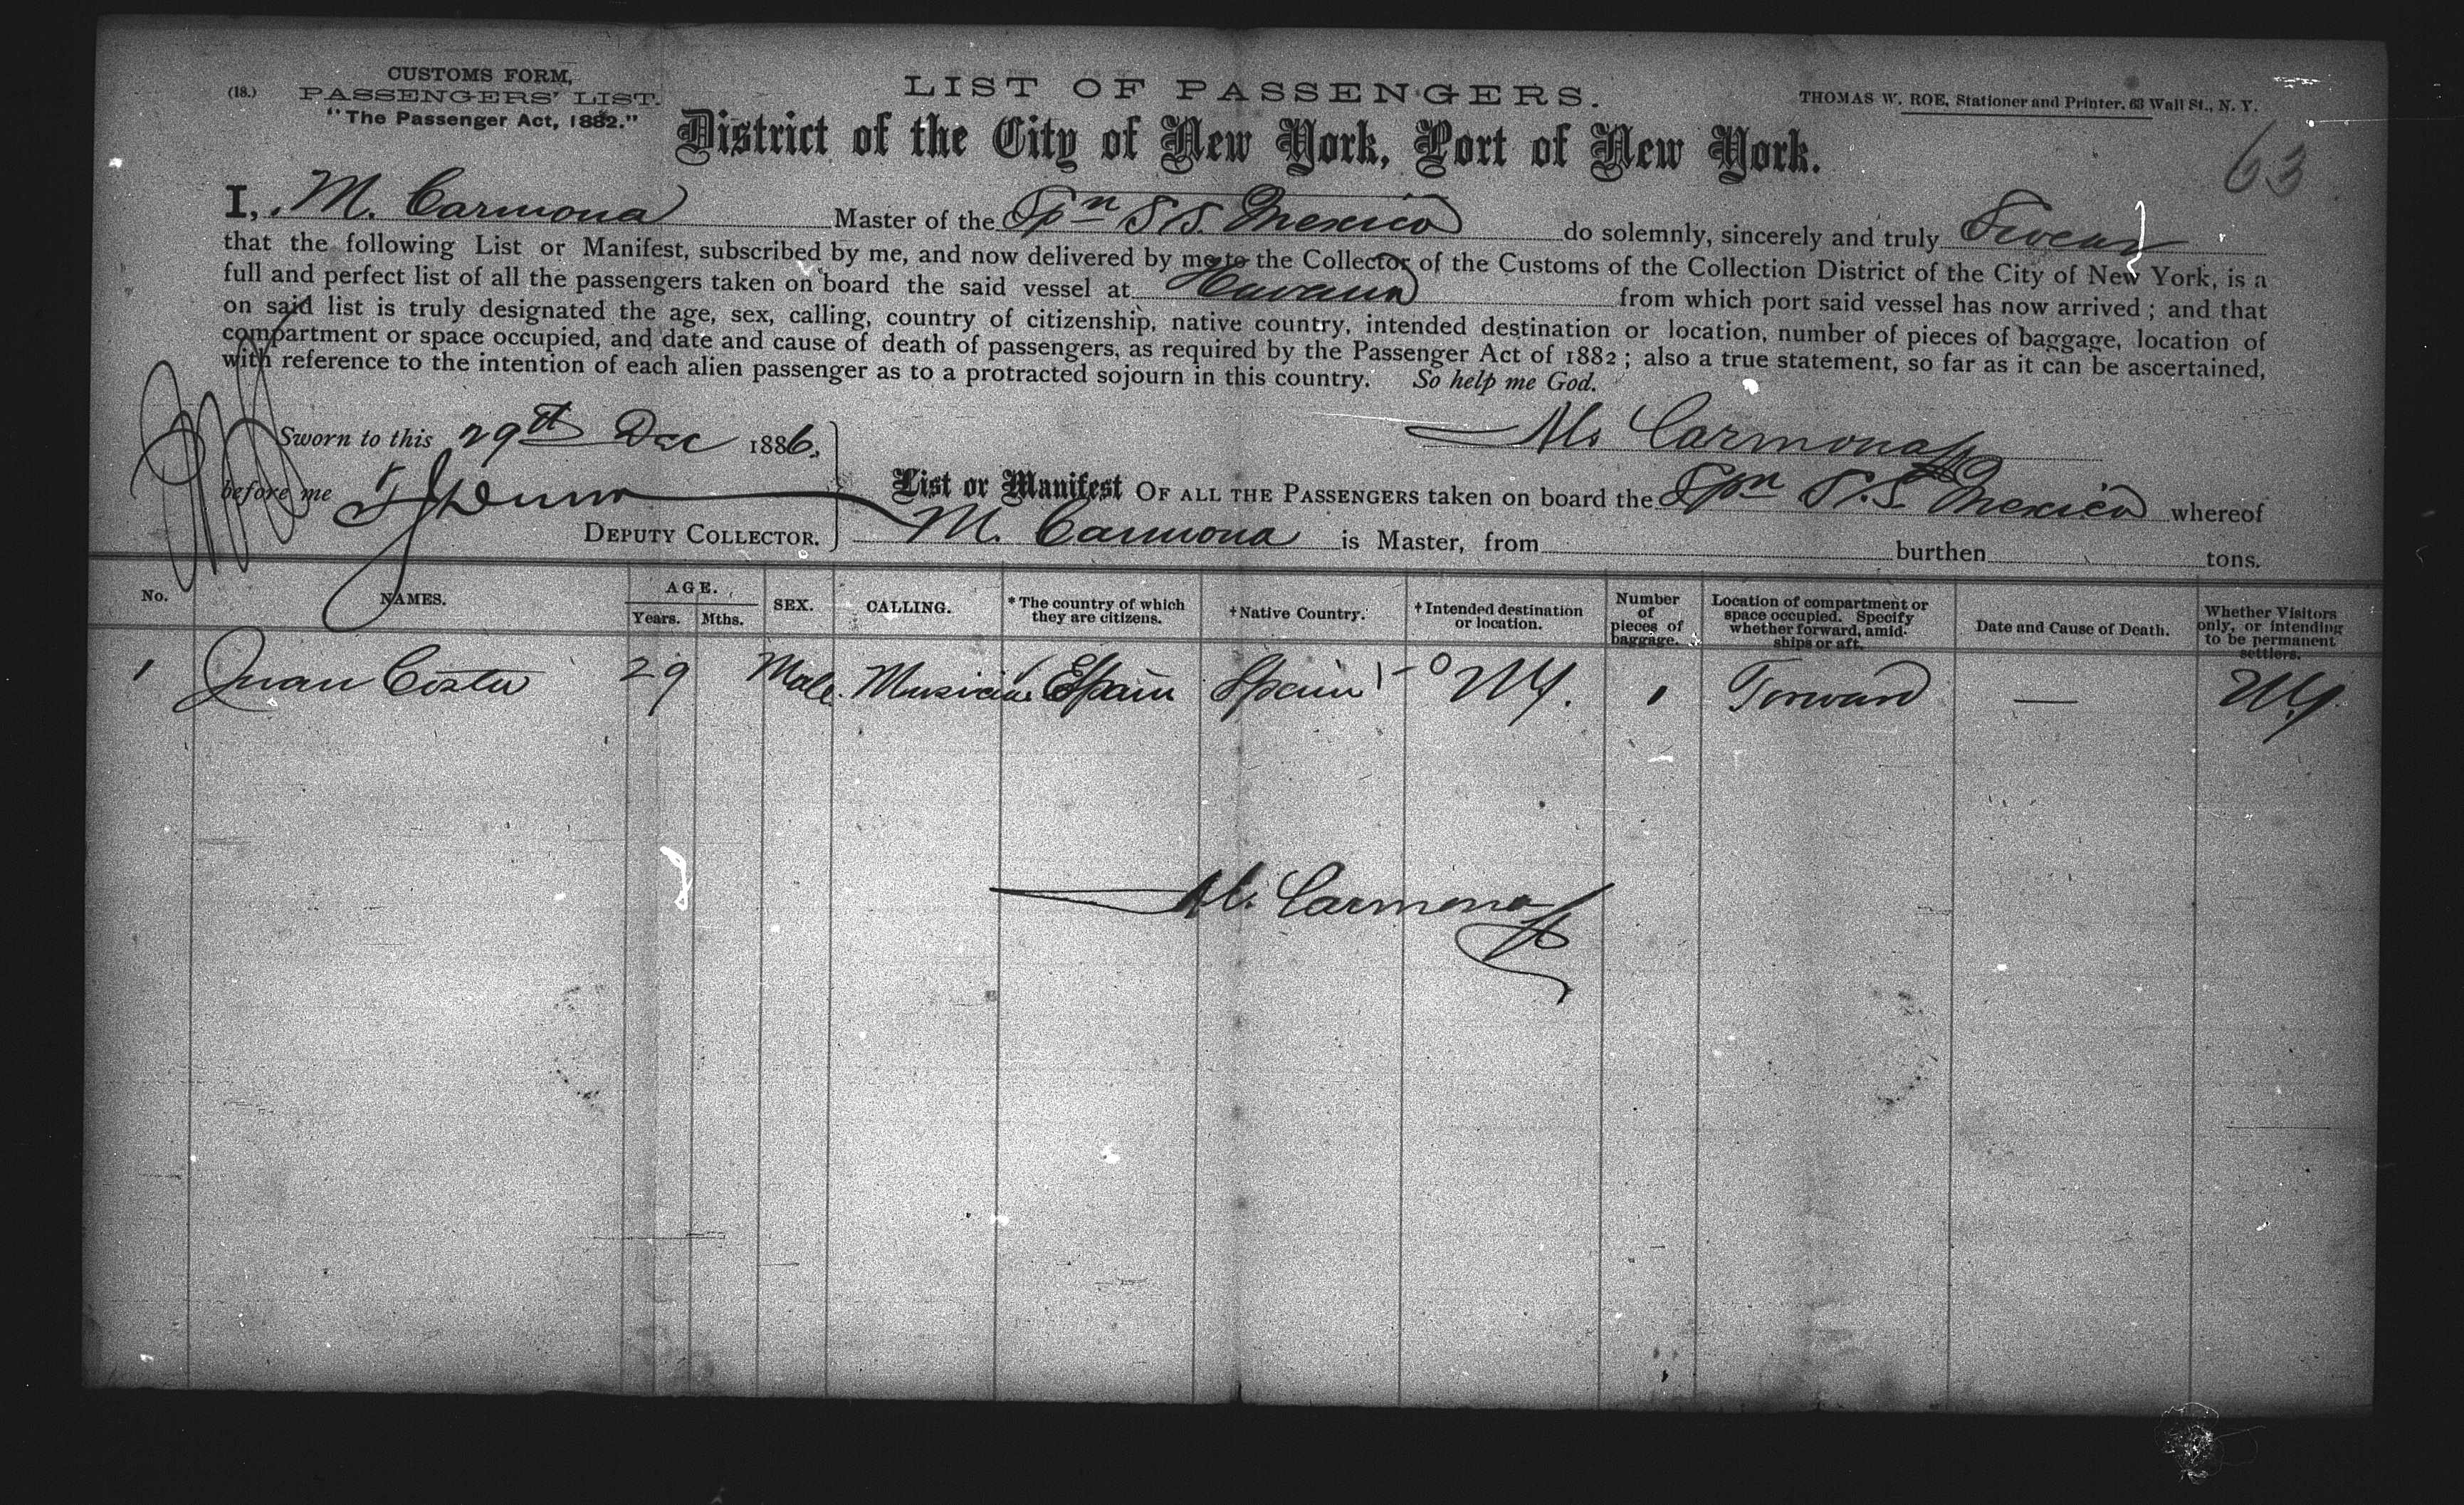 (18.)
CUSTOMS FORM,
PASSENGERS' LIST.
"The Passenger Act, 1882."
LIST OF PASSENGERS.
THOMAS W. ROE, Stationer and Printer. 63 Wall St., N. Y.
District of the City of New York, Port of New York.
63
I, M. Carmona Master of the Spn S.S. Mexico do solemnly, sincerely and truly Swear
that the following List or Manifest, subscribed by me, and now delivered by me to the Collector of the Customs of the Collection District of the City of New York, is a
full and perfect list of all the passengers taken on board the said vessel at Havana from which port said vessel has now arrived; and that
on said list is truly designated the age, sex, calling, country of citizenship, native country, intended destination or location, number of pieces of baggage, location of
compartment or space occupied, and date and cause of death of passengers, as required by the Passenger Act of 1882; also a true statement, so far as it can be ascertained,
with reference to the intention of each alien passenger as to a protracted sojourn in this country. So help me God.
Sworn to this 29th Dec 1886.
M. Carmona
before me
DEPUTY COLLECTOR.
List or Manifest OF ALL THE PASSENGERS taken on board the Spn S.S. Mexico whereof
M. Carmona is Master, from burthen tons.
No. NAMES. AGE. Years. Mths. SEX. CALLING. * The country of which they are citizens. † Native Country. † Intended destination or location. Number of pieces of baggage. Location of compartment or space occupied. Specify whether forward, amidships or aft. Date and Cause of Death. Whether Visitors only, or intending to be permanent settlers.
1 Juan Costa 29 Male. Musician Spain Spain NY. 1 Forward — NY.
M. Carmona